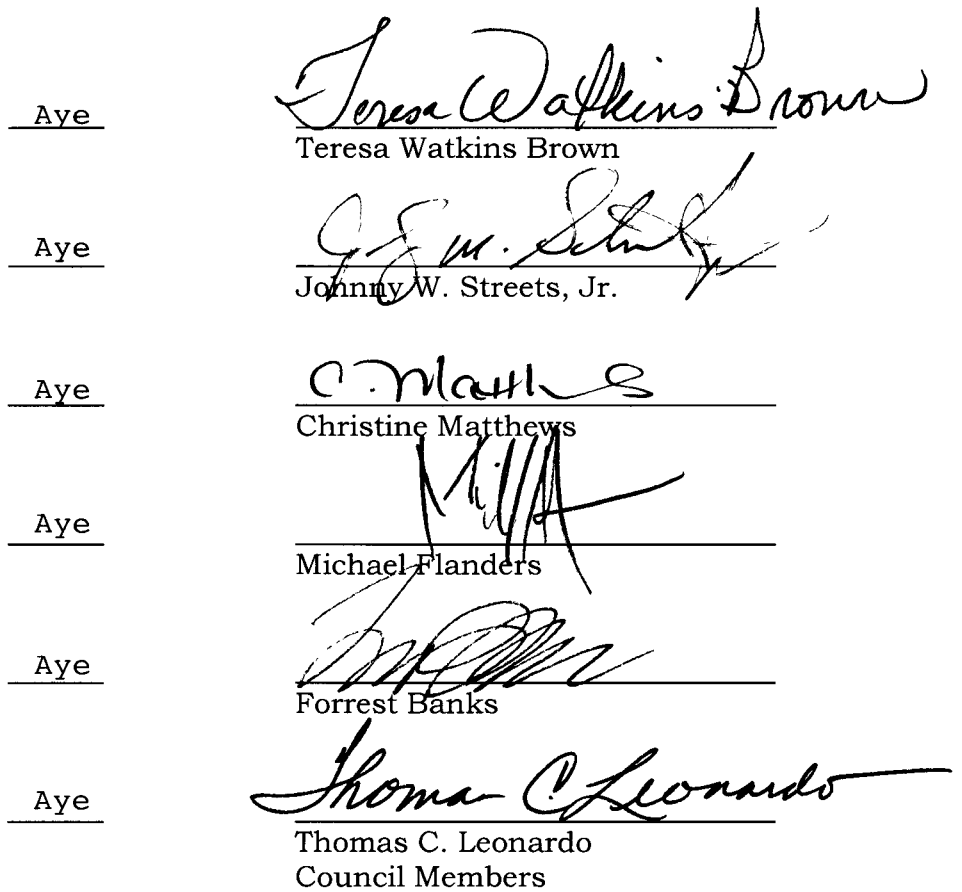 Aye Teresa Watkins Brown
Teresa Watkins Brown
Aye
Johnny W. Streets, Jr.
Aye C. Matthews
Christine Matthews
Aye
Michael Flanders
Aye
Forrest Banks
Aye Thomas C. Leonardo
Thomas C. Leonardo
Council Members